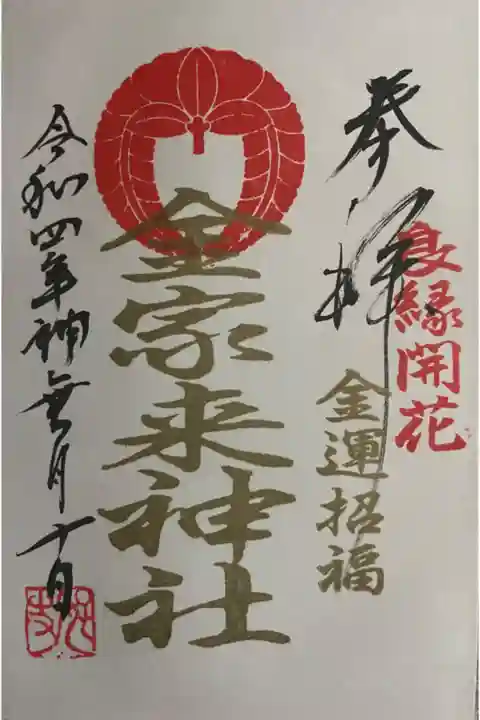 奉拝
良縁開花
金運招福
金家来神社
令和四年神無月十日